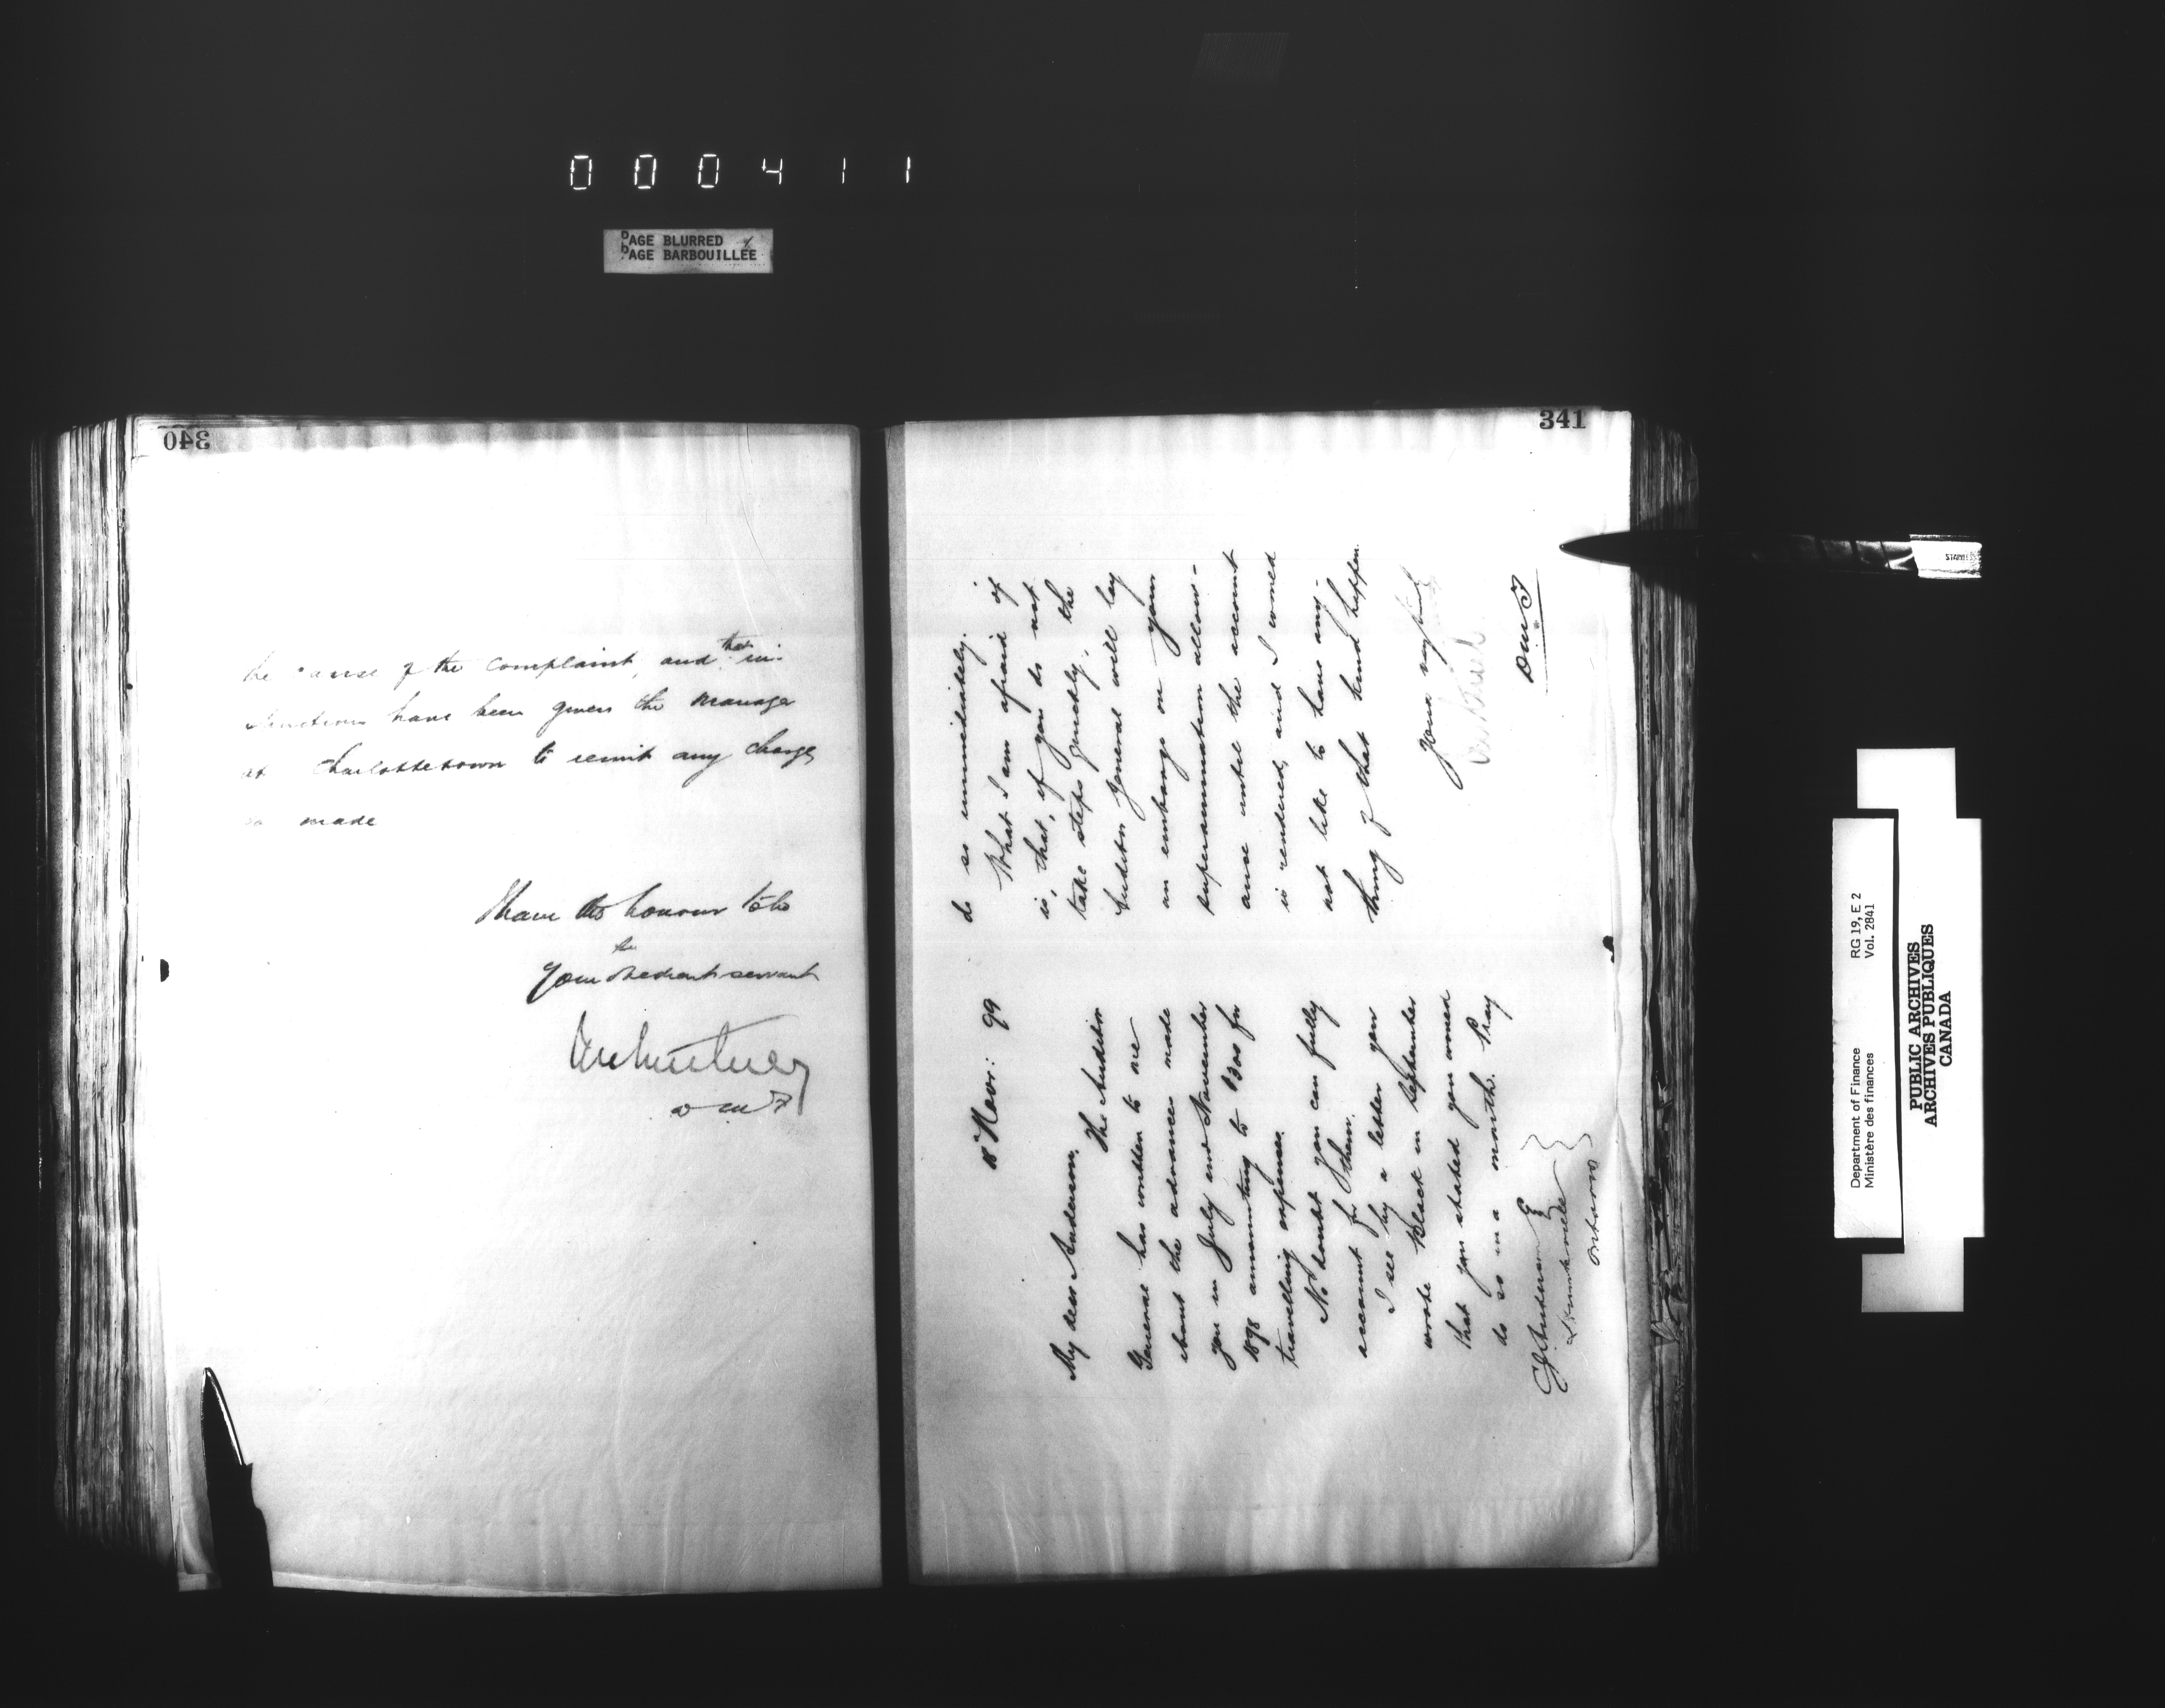 000411
PAGE BLURRED
PAGE BARBOUILLÉE
340
the cause of the complaint, and that in-
structions have been given the manager
at Charlottetown to remit any charge
so made
I have the honour to be
Sir
Your obedient servant
DMF
341
18 Novr: 99
My dear Anderson,
The Auditor
General has written to me
about the advances made
you in July and November
1898 amounting to $300 for
travelling expenses.
No doubt you can fully
account for them.
I see by a letter you
wrote Black in September
that you stated you would
do so in a month. Pray
C Anderson Esq
Ontario
do so immediately.
What I am afraid of
is, that, if you do not
take steps quickly, the
Auditor General will lay
an embargo on your
superannuation allow-
ance until the account
is rendered, and I would
not like to have any-
thing of that kind happen.
Yours very truly
DMF
STAINLESS
Department of Finance
Ministère des finances
RG 19, E 2
Vol. 2841
PUBLIC ARCHIVES
ARCHIVES PUBLIQUES
CANADA